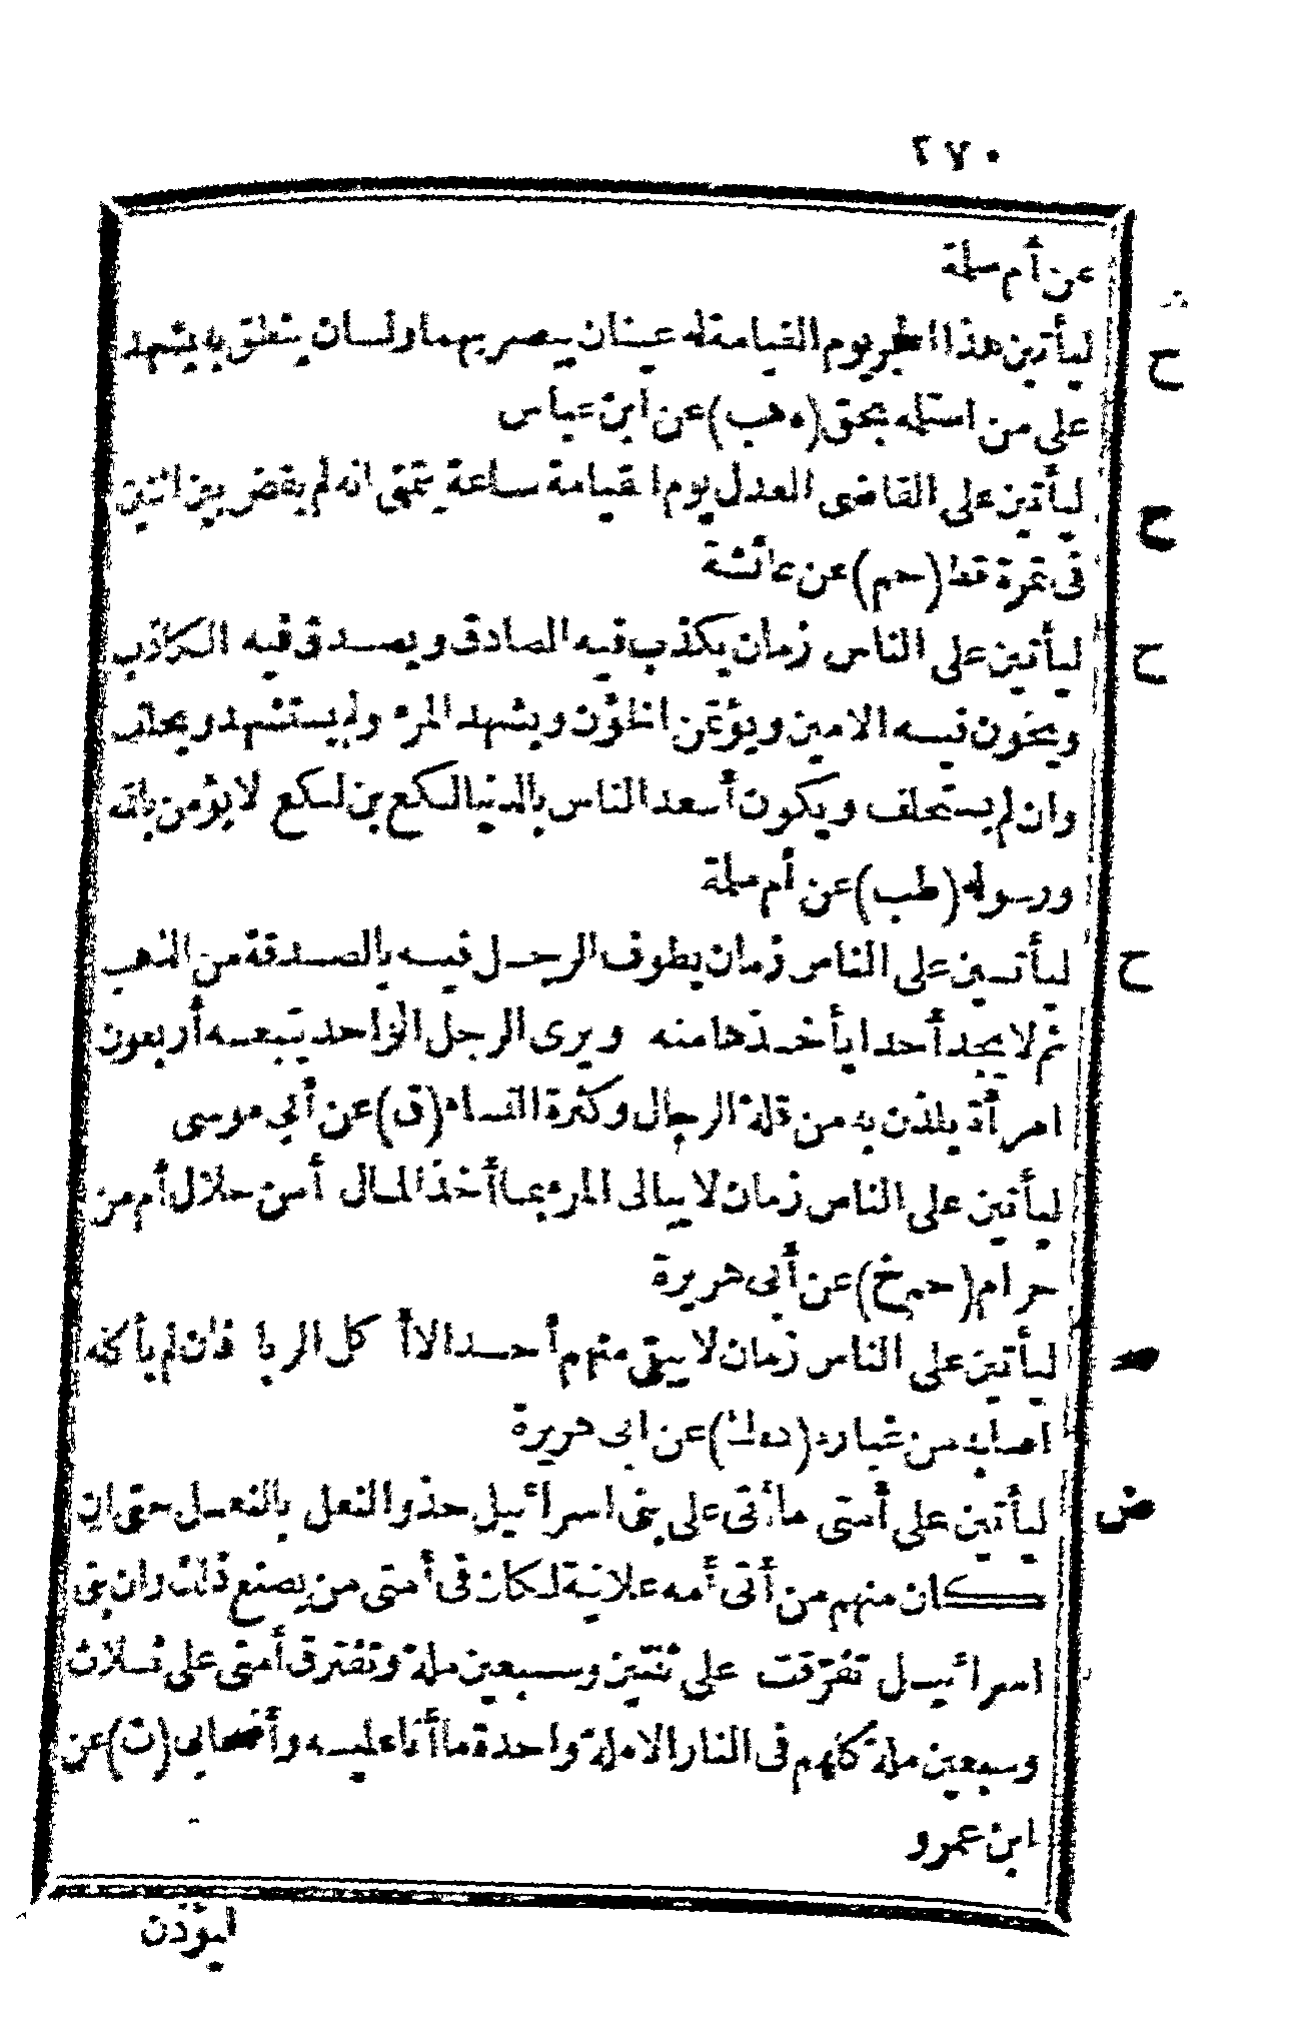 ٢٧٠
عن أم سلمة
ح ليأتين هذا الحجر يوم القيامة له عينان يبصر بهما ولسان ينطق به يشهد
على من استلمه بحق (ه هب) عن ابن عباس
ح ليأتين على القاضى العدل يوم القيامة ساعة يتمنى انه لم يقض بين اثنين
فى تمرة قط (حم) عن عائشة
ح ليأتين على الناس زمان يكذب فيه الصادق ويصدق فيه الكاذب
ويخون فيه الامين ويؤتمن الخؤن ويشهد المرء ولم يستشهد ويحلف
وان لم يستحلف ويكون أسعد الناس بالدنيا لكع بن لكع لا يؤمن بالله
ورسوله (طب) عن أم سلمة
ح ليأتين على الناس زمان يطوف الرجل فيه بالصدقة من الذهب
ثم لا يجد أحدا يأخذها منه ويرى الرجل الواحد يتبعه أربعون
امرأة يلذن به من قلة الرجال وكثرة النساء (ق) عن أبي موسى
ليأتين على الناس زمان لا يبالى المرء بما أخذ المال أمن حلال أم من
حرام (حم خ) عن أبى هريرة
صح ليأتين على الناس زمان لا يبقى منهم أحد الا أكل الربا فان لم يأكله
اصابه من غباره (ده ك) عن ابى هريرة
ض ليأتين على أمتى ما أتى على بنى اسرائيل حذو النعل بالنعل حتى ان
كان منهم من أتى أمه علانية لكان فى أمتى من يصنع ذلك وان بنى
اسرائيل تفرّقت على ثنتين وسبعين ملة وتفترق أمتى على ثلاث
وسبعين ملة كلهم فى النار الا ملة واحدة ما أنا عليه وأصحابى (ت) عن
ابن عمرو
ليؤذن